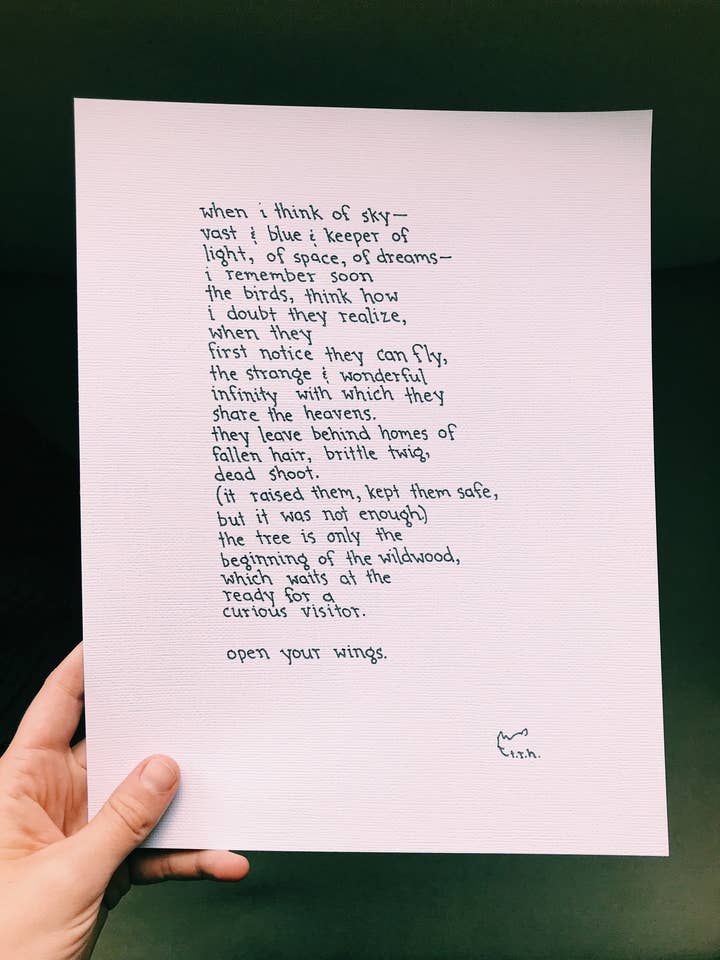 when i think of sky—
vast & blue & keeper of
light, of space, of dreams—
i remember soon
the birds, think how
i doubt they realize,
when they
first notice they can fly,
the strange & wonderful
infinity with which they
share the heavens.
they leave behind homes of
fallen hair, brittle twig,
dead shoot.
(it raised them, kept them safe,
but it was not enough)
the tree is only the
beginning of the wildwood,
which waits at the
ready for a
curious visitor.
open your wings.
t.r.h.